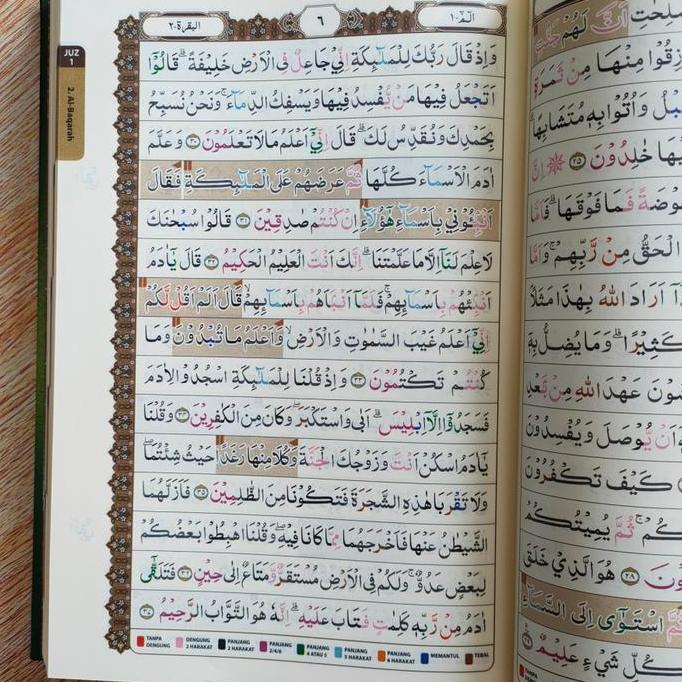 الۤمّۤ ١
٦
البقرة ٢
JUZ
1
2. Al-Baqarah
وَاِذْ قَالَ رَبُّكَ لِلْمَلٰۤىِٕكَةِ اِنِّيْ جَاعِلٌ فِى الْاَرْضِ خَلِيْفَةً ۗ قَالُوْٓا
اَتَجْعَلُ فِيْهَا مَنْ يُّفْسِدُ فِيْهَا وَيَسْفِكُ الدِّمَاۤءَۚ وَنَحْنُ نُسَبِّحُ
بِحَمْدِكَ وَنُقَدِّسُ لَكَ ۗ قَالَ اِنِّيْٓ اَعْلَمُ مَا لَا تَعْلَمُوْنَ ٣٠ وَعَلَّمَ
اٰدَمَ الْاَسْمَاۤءَ كُلَّهَا ثُمَّ عَرَضَهُمْ عَلَى الْمَلٰۤىِٕكَةِ فَقَالَ
اَنْۢبِـُٔوْنِيْ بِاَسْمَاۤءِ هٰٓؤُلَاۤءِ اِنْ كُنْتُمْ صٰدِقِيْنَ ٣١ قَالُوْا سُبْحٰنَكَ
لَا عِلْمَ لَنَآ اِلَّا مَا عَلَّمْتَنَا ۗ اِنَّكَ اَنْتَ الْعَلِيْمُ الْحَكِيْمُ ٣٢ قَالَ يٰٓاٰدَمُ
اَنْۢبِئْهُمْ بِاَسْمَاۤىِٕهِمْ ۚ فَلَمَّآ اَنْۢبَاَهُمْ بِاَسْمَاۤىِٕهِمْۙ قَالَ اَلَمْ اَقُلْ لَّكُمْ
اِنِّيْٓ اَعْلَمُ غَيْبَ السَّمٰوٰتِ وَالْاَرْضِۙ وَاَعْلَمُ مَا تُبْدُوْنَ وَمَا
كُنْتُمْ تَكْتُمُوْنَ ٣٣ وَاِذْ قُلْنَا لِلْمَلٰۤىِٕكَةِ اسْجُدُوْا لِاٰدَمَ
فَسَجَدُوْٓا اِلَّآ اِبْلِيْسَۗ اَبٰى وَاسْتَكْبَرَۖ وَكَانَ مِنَ الْكٰفِرِيْنَ ٣٤ وَقُلْنَا
يٰٓاٰدَمُ اسْكُنْ اَنْتَ وَزَوْجُكَ الْجَنَّةَ وَكُلَا مِنْهَا رَغَدًا حَيْثُ شِئْتُمَاۖ
وَلَا تَقْرَبَا هٰذِهِ الشَّجَرَةَ فَتَكُوْنَا مِنَ الظّٰلِمِيْنَ ٣٥ فَاَزَلَّهُمَا
الشَّيْطٰنُ عَنْهَا فَاَخْرَجَهُمَا مِمَّا كَانَا فِيْهِۖ وَقُلْنَا اهْبِطُوْا بَعْضُكُمْ
لِبَعْضٍ عَدُوٌّ ۚ وَلَكُمْ فِى الْاَرْضِ مُسْتَقَرٌّ وَّمَتَاعٌ اِلٰى حِيْنٍ ٣٦ فَتَلَقّٰٓى
اٰدَمُ مِنْ رَّبِّهٖ كَلِمٰتٍ فَتَابَ عَلَيْهِ ۗ اِنَّهٗ هُوَ التَّوَّابُ الرَّحِيْمُ ٣٧
TANPA DENGUNG
DENGUNG 2 HARAKAT
PANJANG 2 HARAKAT
PANJANG 2/4/6
PANJANG 4 ATAU 5
PANJANG 5 HARAKAT
PANJANG 6 HARAKAT
MEMANTUL
TEBAL
اَنَّ لَهُمْ
رُزِقُوْا مِنْهَا مِنْ ثَمَرَةٍ
قَبْلُ وَاُتُوْا بِهٖ مُتَشَابِهًا
فِيْهَا خٰلِدُوْنَ ٢٥ اِنَّ
بَعُوْضَةً فَمَا فَوْقَهَا ۗ فَاَمَّا
الْحَقُّ مِنْ رَّبِّهِمْ ۚ وَاَمَّا
اَرَادَ اللّٰهُ بِهٰذَا مَثَلًا
كَثِيْرًا ۗ وَمَا يُضِلُّ بِهٖ
عَهْدَ اللّٰهِ مِنْۢ بَعْدِ
اَنْ يُّوْصَلَ وَيُفْسِدُوْنَ
كَيْفَ تَكْفُرُوْنَ
ثُمَّ يُمِيْتُكُمْ
٢٨ هُوَ الَّذِيْ خَلَقَ
اسْتَوٰٓى اِلَى السَّمَاۤءِ
شَيْءٍ عَلِيْمٌ